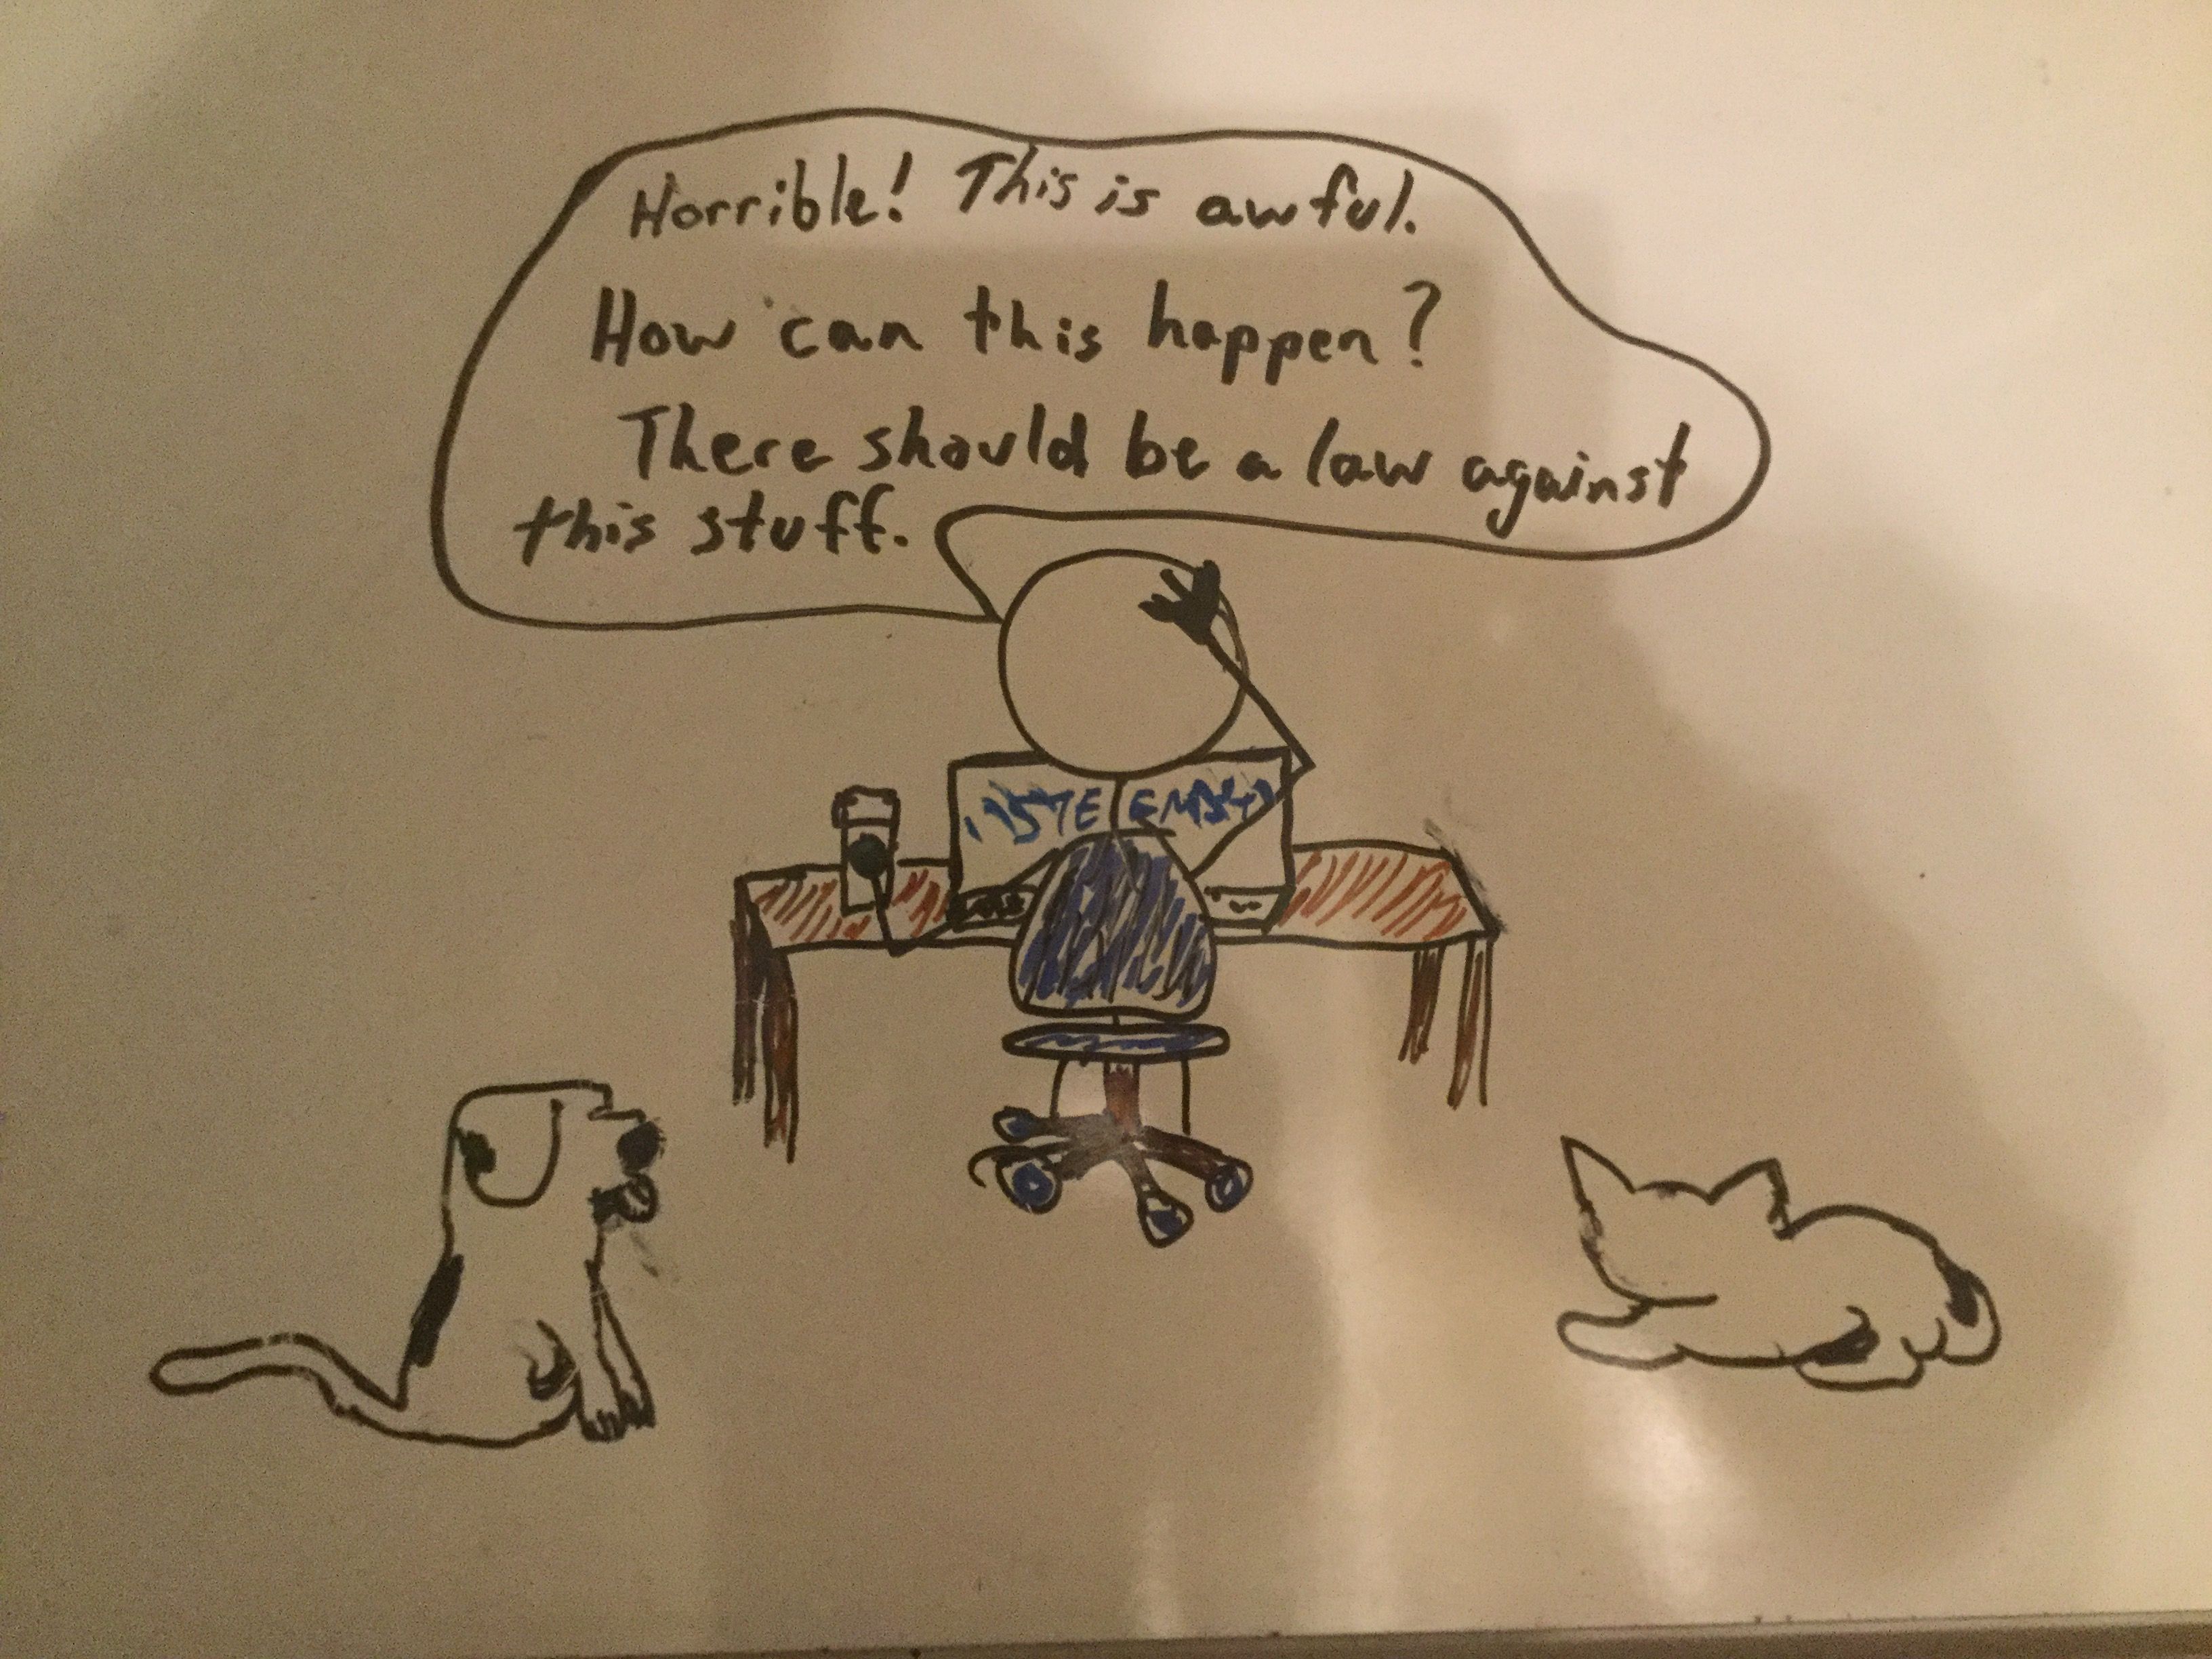 Horrible! This is awful.
How can this happen?
There should be a law against
this stuff.